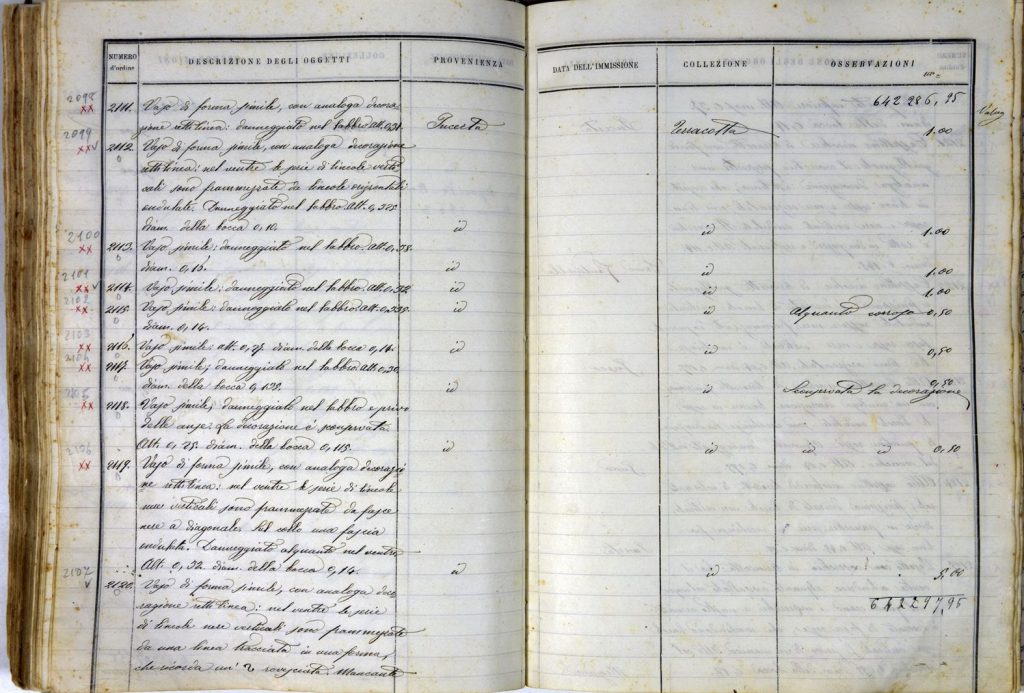 NUMERO d'ordine
DESCRIZIONE DEGLI OGGETTI
PROVENIENZA
DATA DELL'IMMISSIONE
COLLEZIONE
OSSERVAZIONI
642286,95
2098
xx
2111. Vaso di forma simile, con analoga decora-
zione rettilinea: danneggiato nel labbro. Alt. 0,31. Terracotta 1.00
2099
xx v
2112. Vaso di forma simile, con analoga decorazione
rettilinea: nel ventre le serie di lineole verti-
cali sono frammezzate da lineole orizzontali
ondulate. Danneggiato nel labbro. Alt. 0,325
diam. della bocca 0,10. id id 1.00
2100
xx
2113. Vaso simile; danneggiato nel labbro. Alt. 0,38.
diam. 0,15. id id 1.00
2101
xx v
2114. Vaso simile: danneggiato nel labbro. Alt. 0,32. id id 1.00
2102
xx
2115. Vaso simile: danneggiato nel labbro. Alt. 0,335. id id Alquanto corroso 0,50
diam. 0,14.
2103
xx
2116. Vaso simile: alt. 0,27. diam. della bocca 0,14. id id 0,50
2104
xx
2117. Vaso simile; danneggiato nel labbro. Alt. 0,30.
diam. della bocca 0,128. id id Scomparsa la decorazione 0,50
2105
xx
2118. Vaso simile, danneggiato nel labbro e privo
delle anse. La decorazione è scomparsa.
Alt. 0,25. diam. della bocca 0,115. id id id id 0,50
2106
xx
2119. Vaso di forma simile, con analoga decorazio-
ne rettilinea: nel ventre le serie di lineole
nere verticali sono frammezzate da fasce
nere a diagonale. Sul collo una fascia
ondulata. Danneggiato alquanto nel ventre
Alt. 0,32. diam. della bocca 0,14. id id 5.00
2107
v
2120. Vaso di forma simile, con analoga deco-
razione rettilinea: nel ventre le serie
di lineole nere verticali sono frammezzate
da una linea tracciata in una forma,
che ricorda un' S rovesciata. Mancante
642297,95